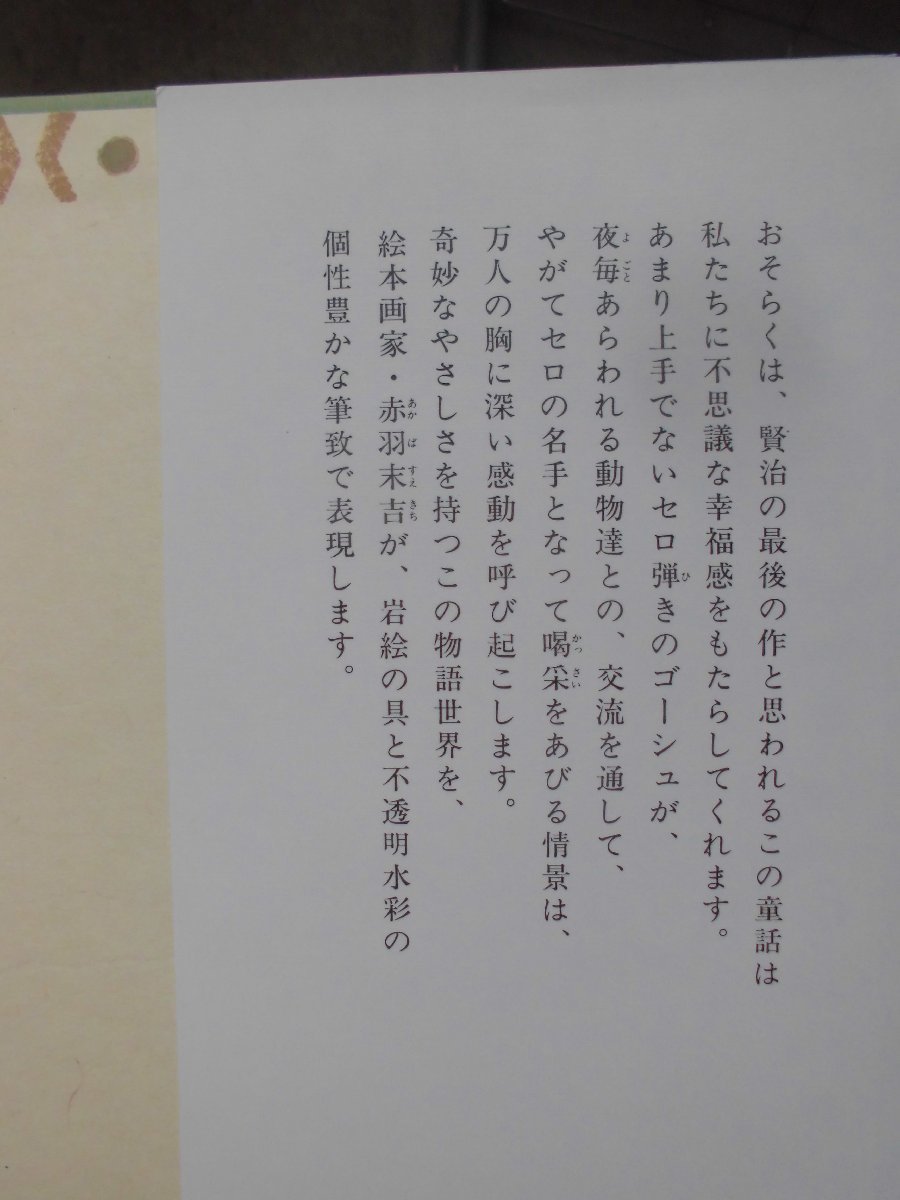 おそらくは、賢治の最後の作と思われるこの童話は
私たちに不思議な幸福感をもたらしてくれます。
あまり上手でないセロ弾きのゴーシュが、
夜毎あらわれる動物達との、交流を通して、
やがてセロの名手となって喝采をあびる情景は、
万人の胸に深い感動を呼び起こします。
奇妙なやさしさを持つこの物語世界を、
絵本画家・赤羽末吉が、岩絵の具と不透明水彩の
個性豊かな筆致で表現します。